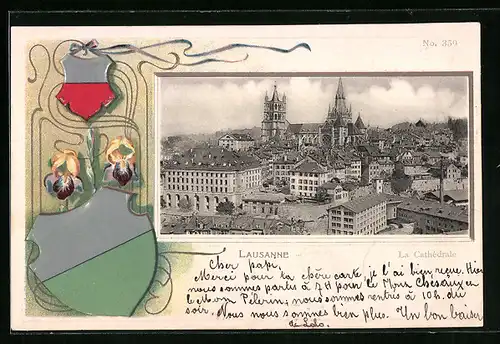 No. 350
LAUSANNE
La Cathédrale
Cher papa,
Merci pour la chère carte, je l'ai bien reçue. Hier
nous sommes partis à 7 H pour le
et le Mon Pélerin; nous sommes rentrés à 10 h. du
soir. Nous nous sommes bien plus. Un bon baiser
de Lolo.